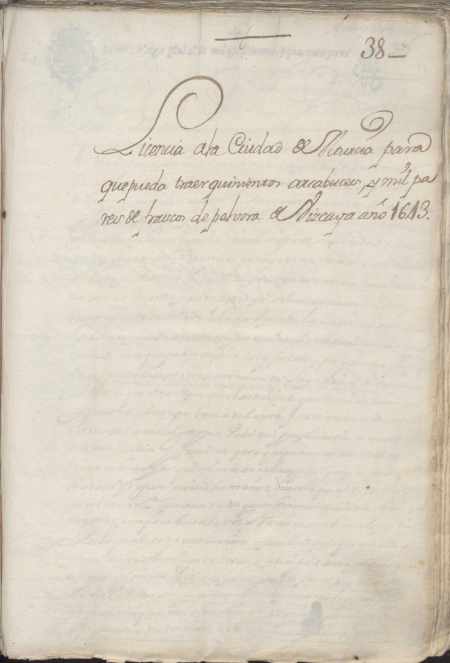 38
Licencia ala Ciudad de Murcia para
que pueda traer quinientos arcabuces, y mil pa
res de frascos de polvora de Vizcaya año 1643.